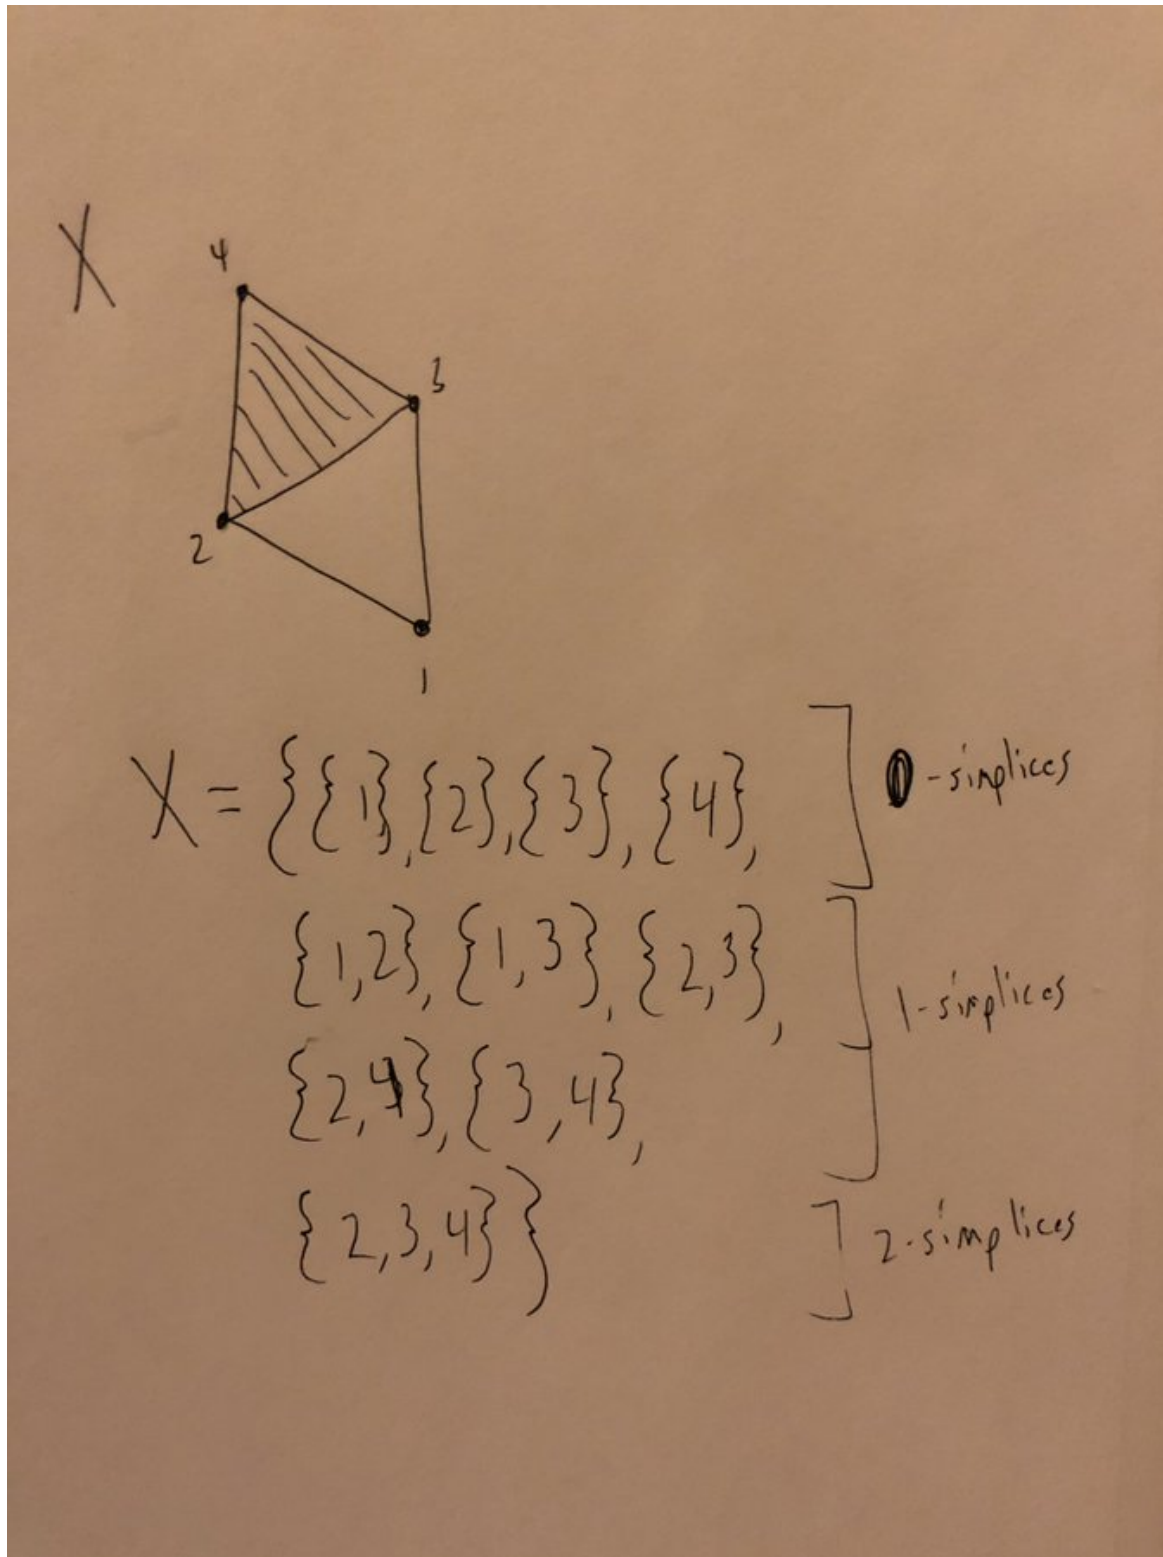 X
4
3
2
1
X = {{1}, {2}, {3}, {4},
0-simplices
{1,2}, {1,3}, {2,3},
1-simplices
{2,4}, {3,4},
{2,3,4}}
2-simplices